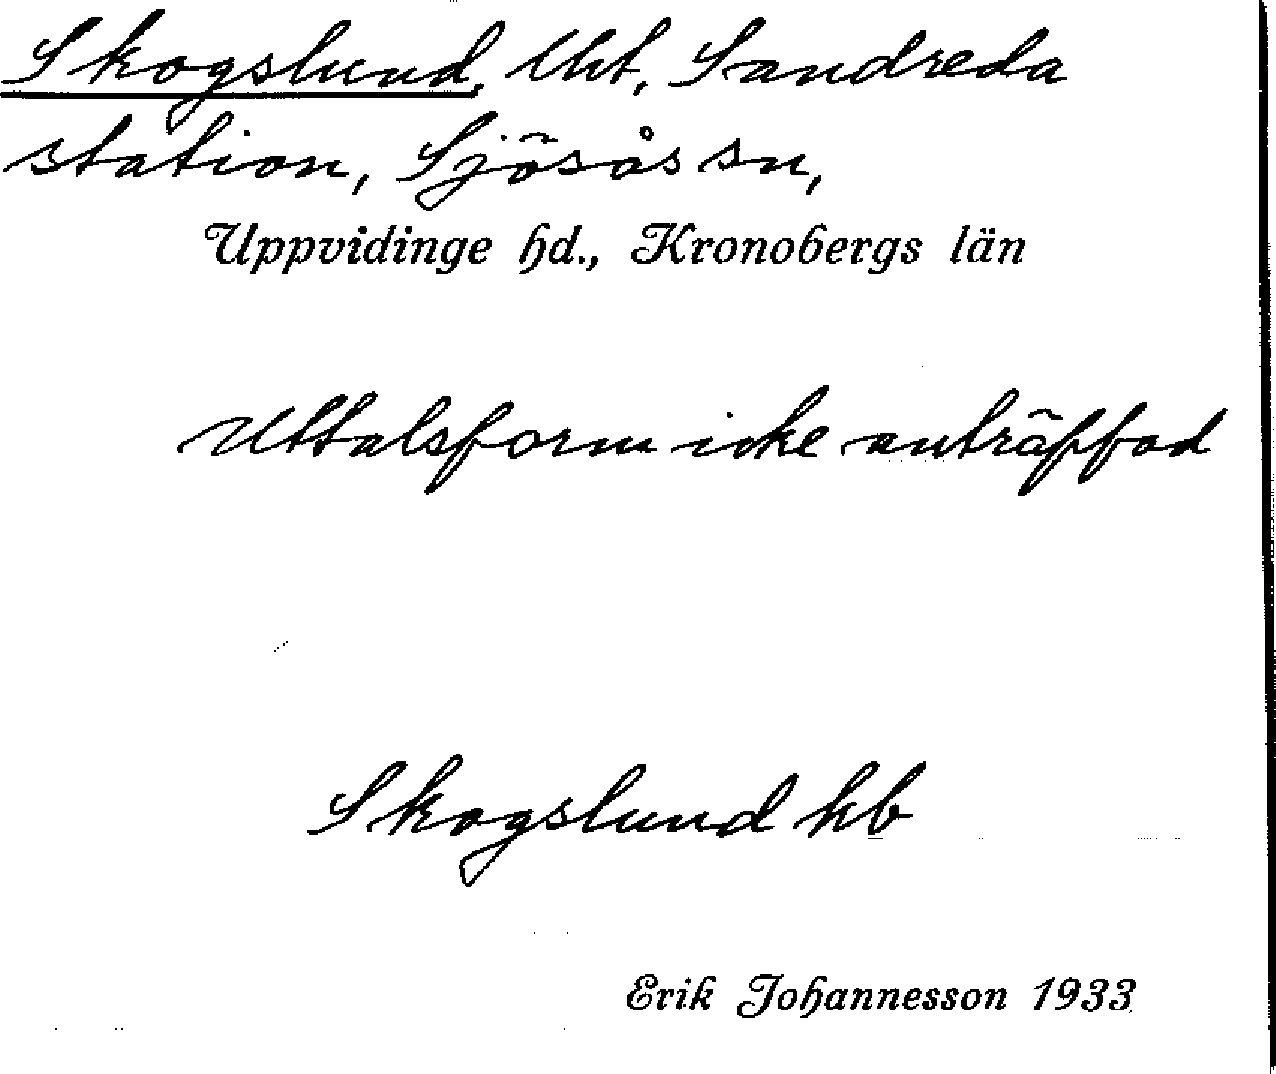 Skogslund, lht, Sandreda
station, Sjösås sn,
Uppvidinge hd., Kronobergs län
Uttalsform icke anträffad
Skogslund hb
Erik Johannesson 1933